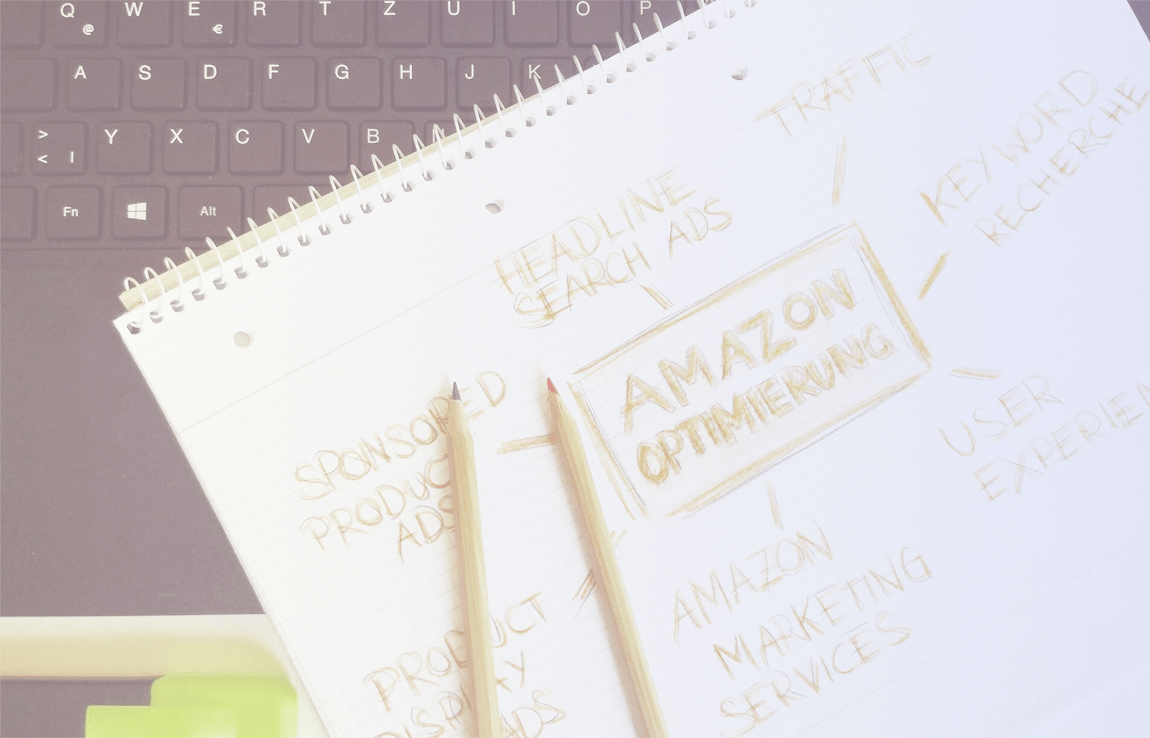 Q W E R T Z U I O P
@ €
A S D F G H J K
> < | Y X C V B
Fn Alt
TRAFFIC
KEYWORD
RECHERCHE
HEADLINE
SEARCH ADS
AMAZON
OPTIMIERUNG
USER
SPONSORED
PRODUCT
ADS
AMAZON
MARKETING
SERVICES
PRODUCT
DISPLAY
ADS